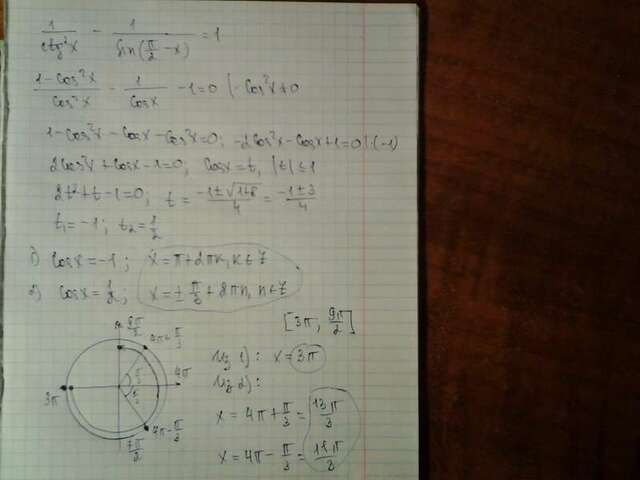 1/ctg²x - 1/sin(π/2 - x) = 1
(1-cos²x)/cos²x - 1/cosx - 1 = 0 |· cos²x ≠ 0
1-cos²x - cosx - cos²x = 0; -2cos²x - cosx + 1 = 0 |·(-1)
2cos²x + cosx - 1 = 0; cosx = t, |t| ≤ 1
2t² + t - 1 = 0; t = (-1 ± √(1+8))/4 = (-1 ± 3)/4
t₁ = -1; t₂ = 1/2
1) cosx = -1; x = π + 2πк, к ∈ Z
2) cosx = 1/2; x = ± π/3 + 2πn, n ∈ Z
[3π, 9π/2]
9π/2
4π + π/3
Из 1): x = 3π
π/3
4π
3π
Из 2):
π/3
x = 4π + π/3 = 13π/3
4π - π/3
7π/2
x = 4π - π/3 = 11π/3